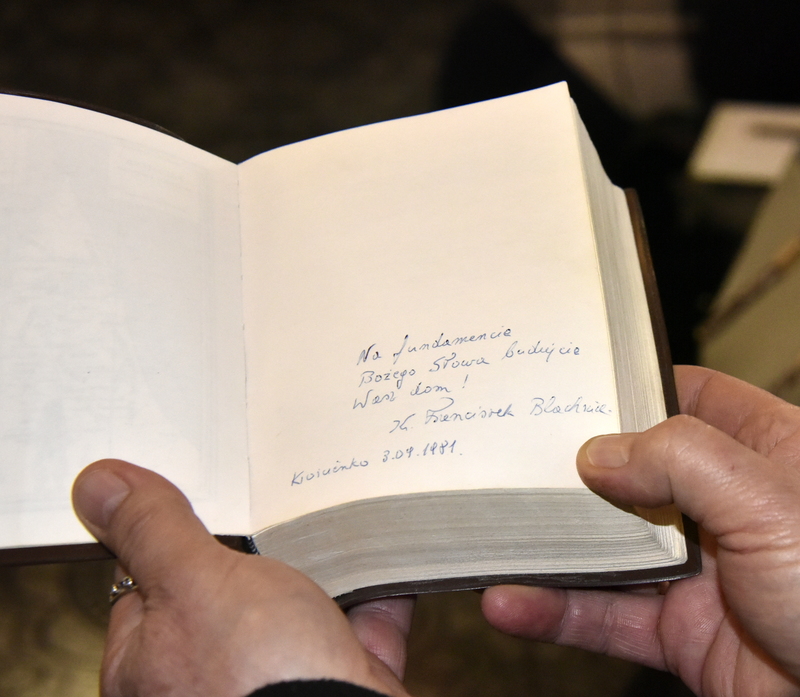 Na fundamencie
Bożego Słowa budujcie
Wasz dom!
Ks. Franciszek Blachnicki.
Krościenko 3.07.1981.